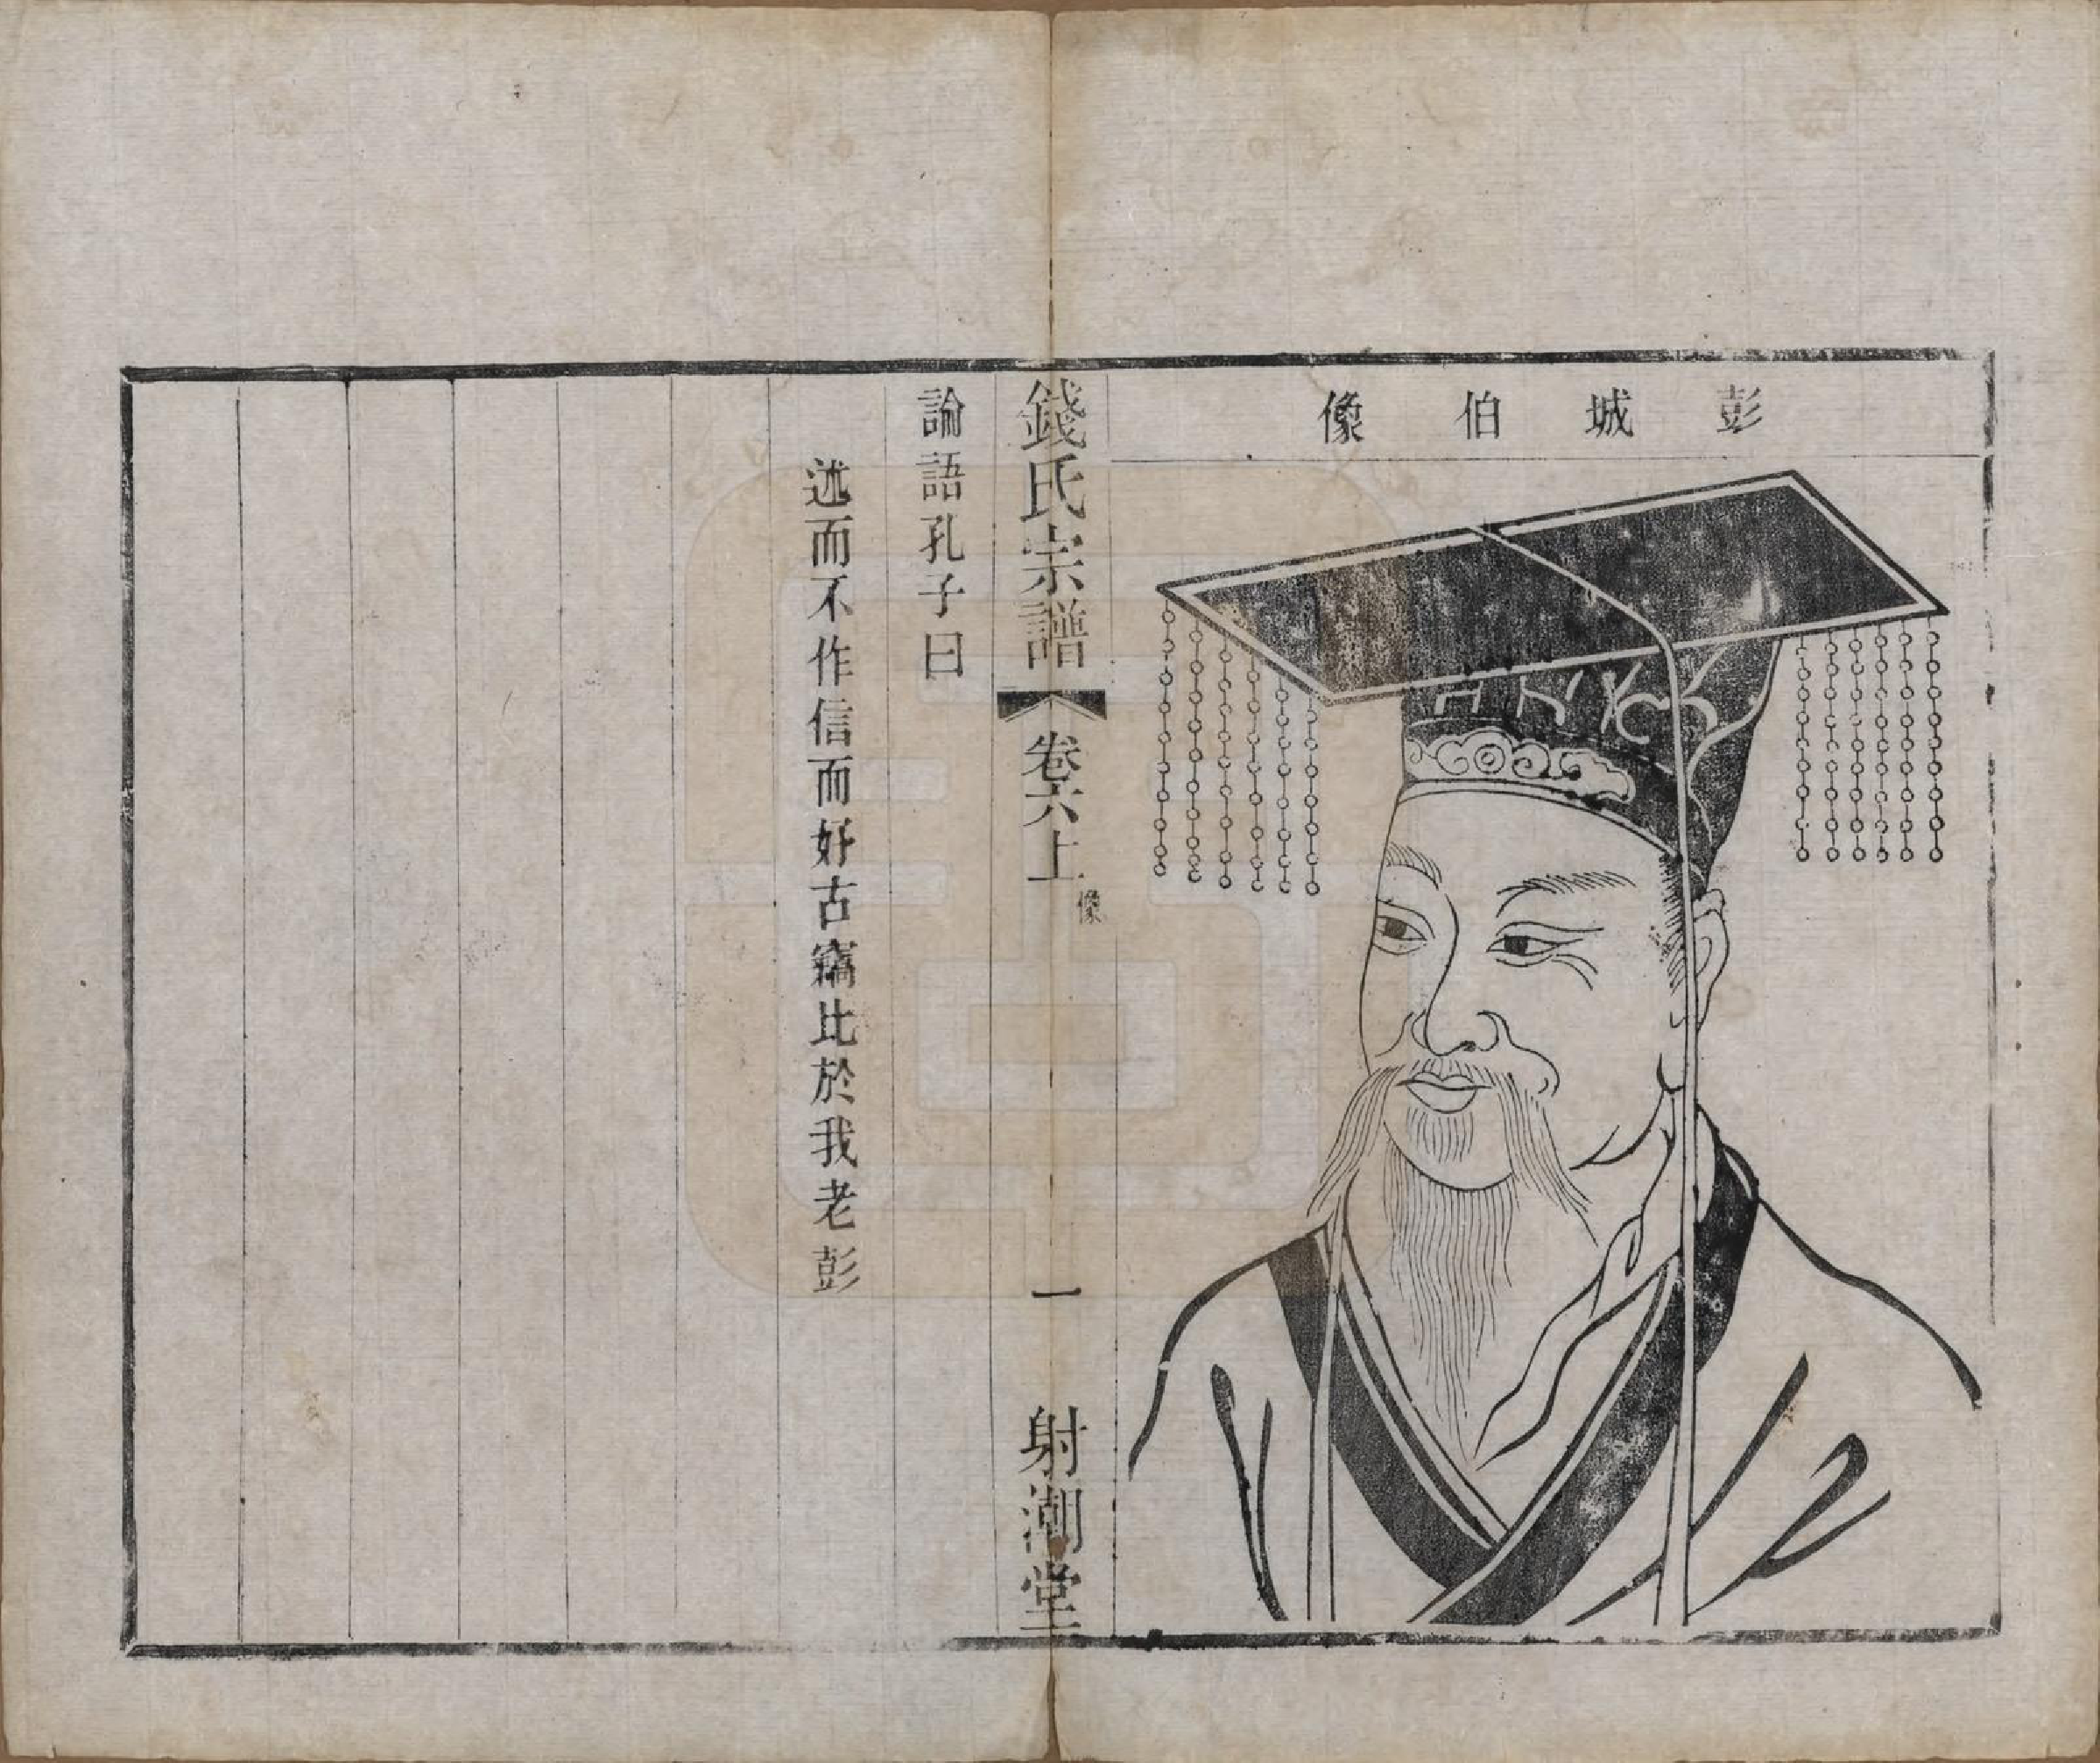 彭城伯像
錢氏宗譜
卷六上
像
一
射潮堂
論語孔子曰
述而不作信而好古竊比於我老彭